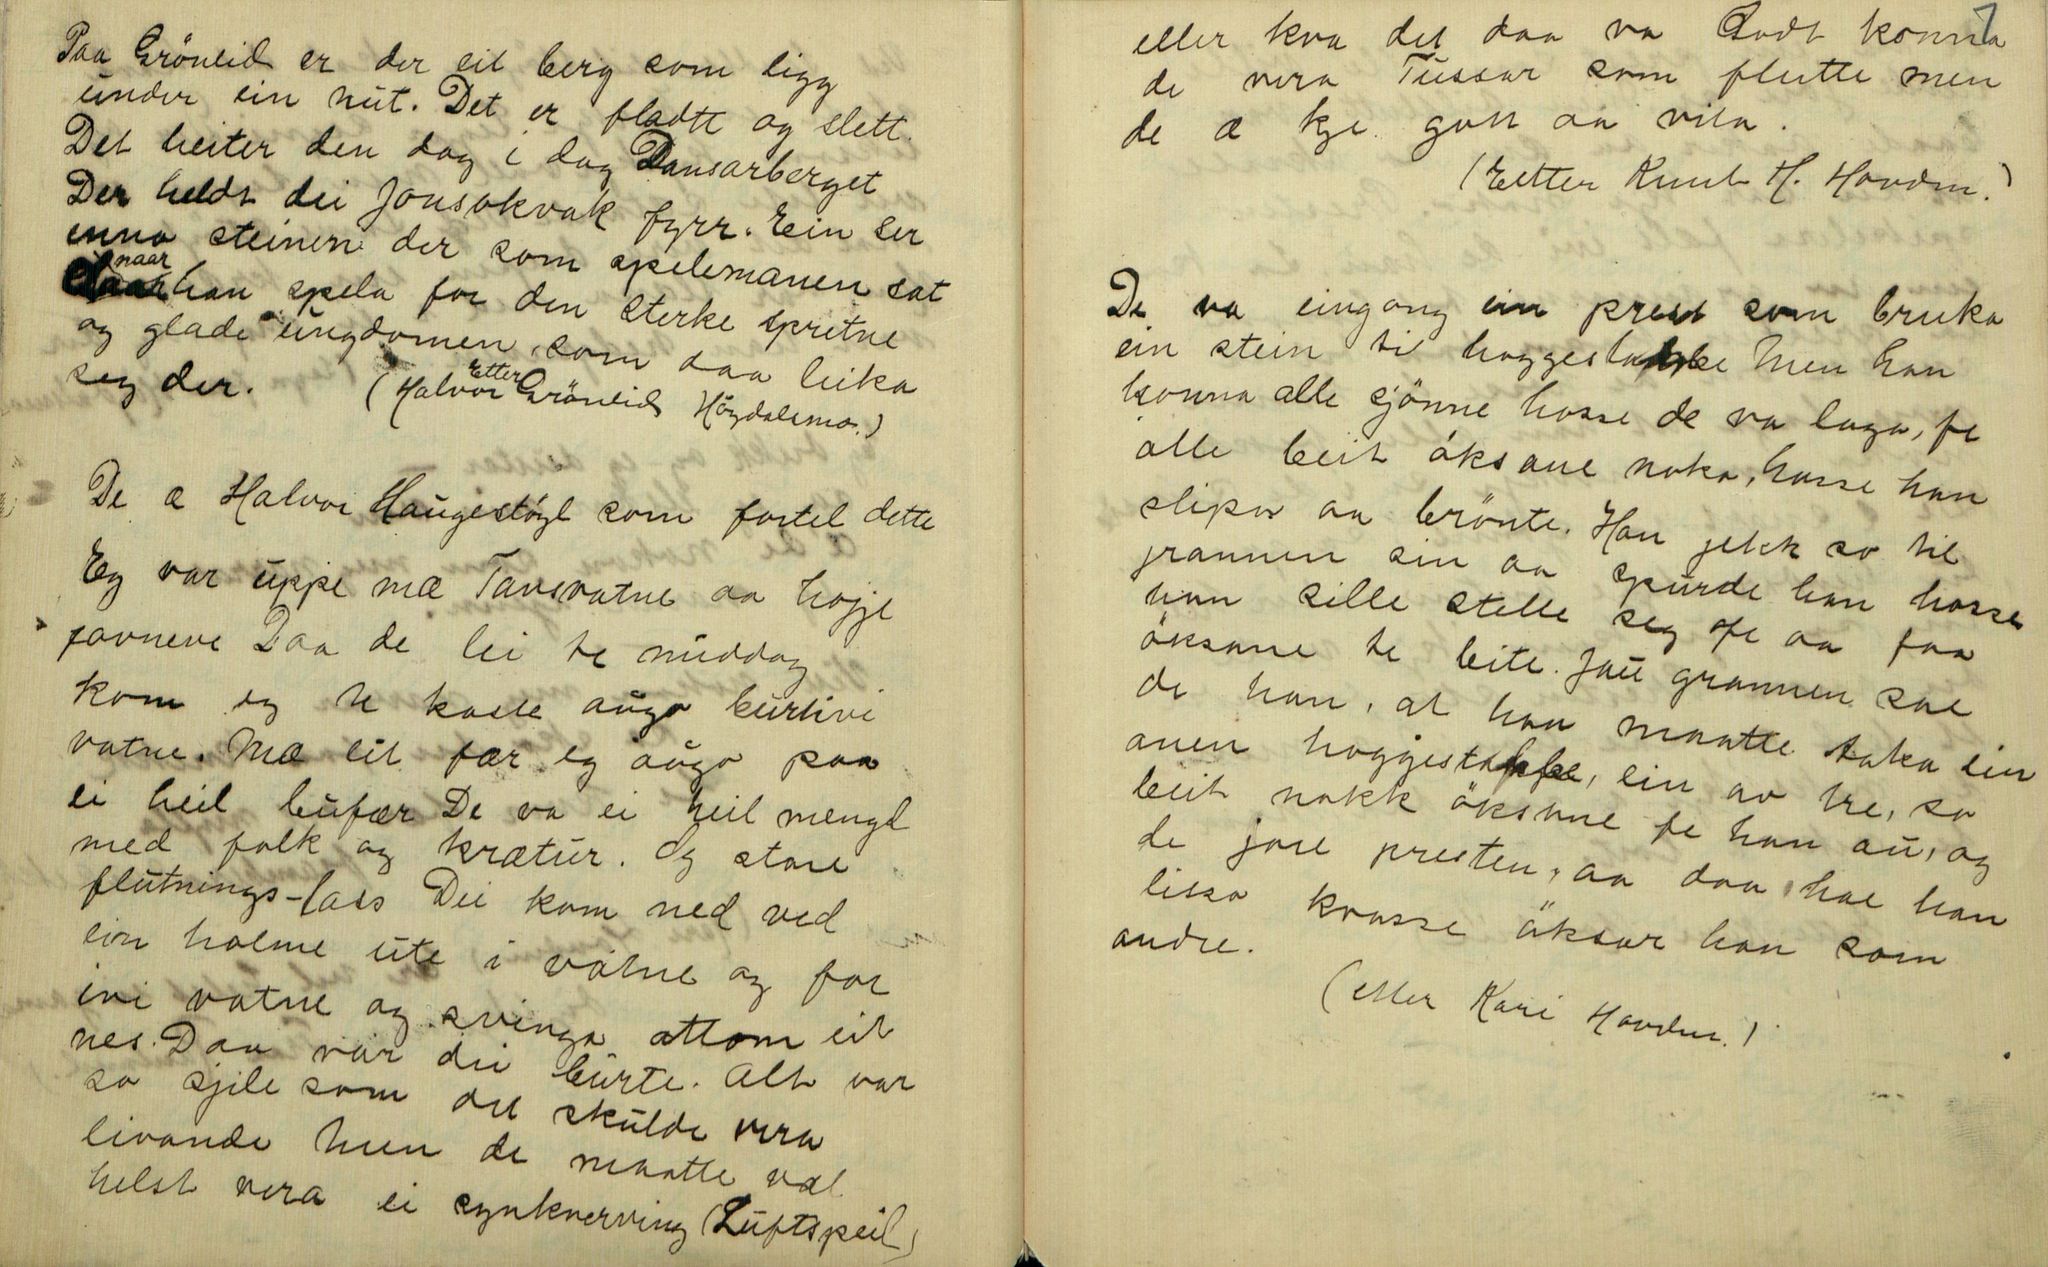 Paa Gröneid er der eit berg som ligg
under ein nut. Det er fladtt og slett.
Det heiter den dag i dag Dansarberget
Der heldt dei Jonsokvak fyrr. Ein ser
enno steinen der som spelemanen sat
naar han spela for den sterke spretne
og glade ungdomen, som daa leika
seg der. (Etter Halvor Gröneid Høgdalsmo.)
De æ Halvor Haugestøyl som fortel dette
Eg var uppe mæ Tansvatne aa hojje
favneve Daa de lei te middag
kom eg te kaste augo burtivi
vatne. Mæ eit fær eg augo paa
ei heil bufær De va ei heil mengd
med folk og krætur. Og store
flutnings-lass Dei kom ned ved
ein holme ute i vatne og for
ivi vatne og svinga attom eit
nes. Daa var dei burte. Alt var
so sjile som det skulde vera
livande men de maatte væl
helst vera ei synkverving (Luftspeil)
7
eller kva det daa va Godt konna
de vera Tussar som flutte men
de æ kje gott aa vita.
(Etter Knut H. Hovden.)
De va eingong ein prest som bruka
ein stein til hoggestabbe Men han
konna alle sjönne hosse de va laga, fe
alle beit öksane noko, hosse han
slipa aa brönte. Han jekk so til
grannen sin aa spurde han hosse
han sille stelle seg fe aa faa
öksane te bite. Jau grannen sae
de han, at han maatte taka ein
anen hoggjestabbe, ein av tre, so
beit nokk öksane fe han au, og
de jore presten, aa daa hae han
likso kvasse öksar han som
andre.
(etter Kari Hovden.)